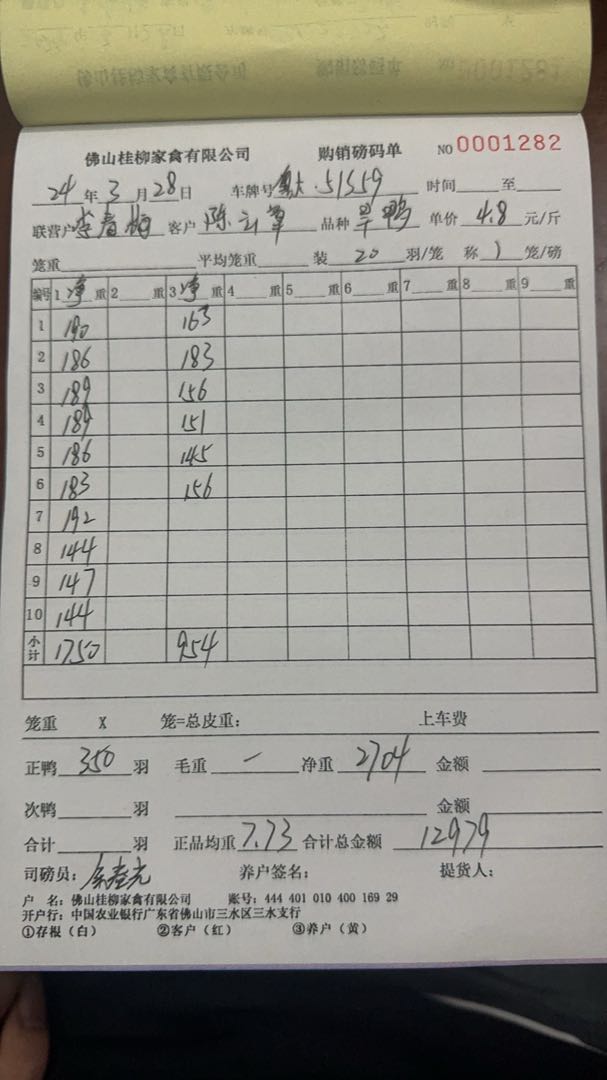 佛山桂柳家禽有限公司 购销磅码单 NO 0001282
24年3月28日 车牌号 51559 时间 至
联营户 李春梅 客户 陈云 品种 旱鸭 单价 4.8 元/斤
笼重 平均笼重 装 20 羽/笼 称 1 笼/磅
编号 1 净 重 2 重 3 净 重 4 重 5 重 6 重 7 重 8 重 9 重
1 190 163
2 186 183
3 189 156
4 189 151
5 186 145
6 183 156
7 192
8 144
9 147
10 144
小计 1750 954
笼重 X 笼=总皮重: 上车费
正鸭 350 羽 毛重 — 净重 2704 金额
次鸭 羽 金额
合计 羽 正品均重 7.73 合计总金额 12979
司磅员: 养户签名: 提货人:
户 名: 佛山桂柳家禽有限公司 账号: 444 401 010 400 169 29
开户行: 中国农业银行广东省佛山市三水区三水支行
①存根(白) ②客户(红) ③养户(黄)